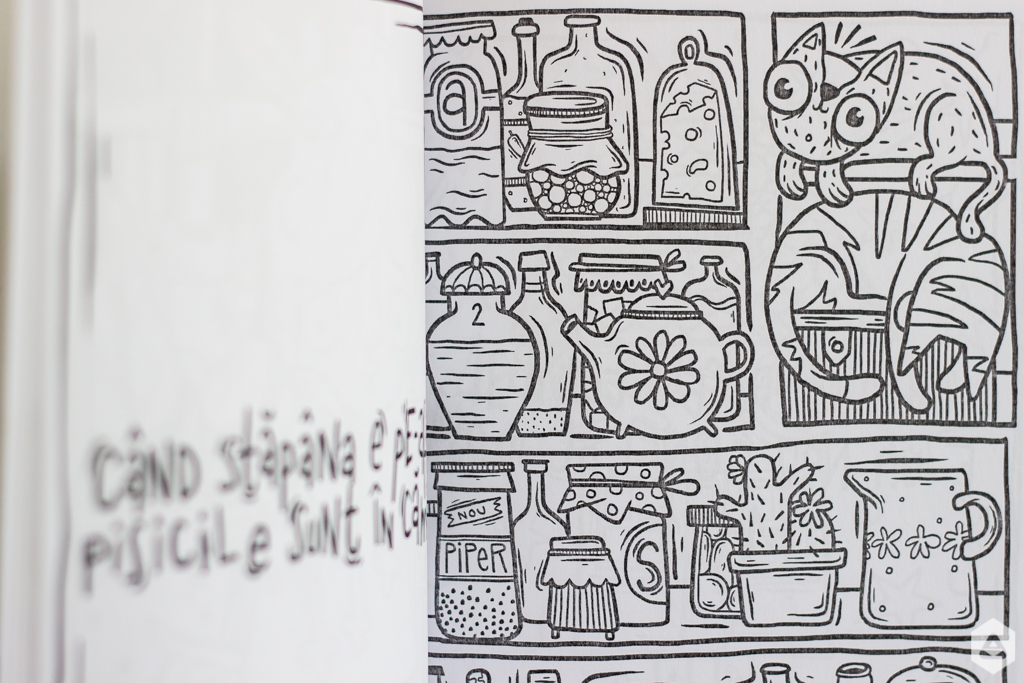 CÂND STĂPÂNA E
PISICILE SUNT ÎN
a
2
NOU
PIPER
S